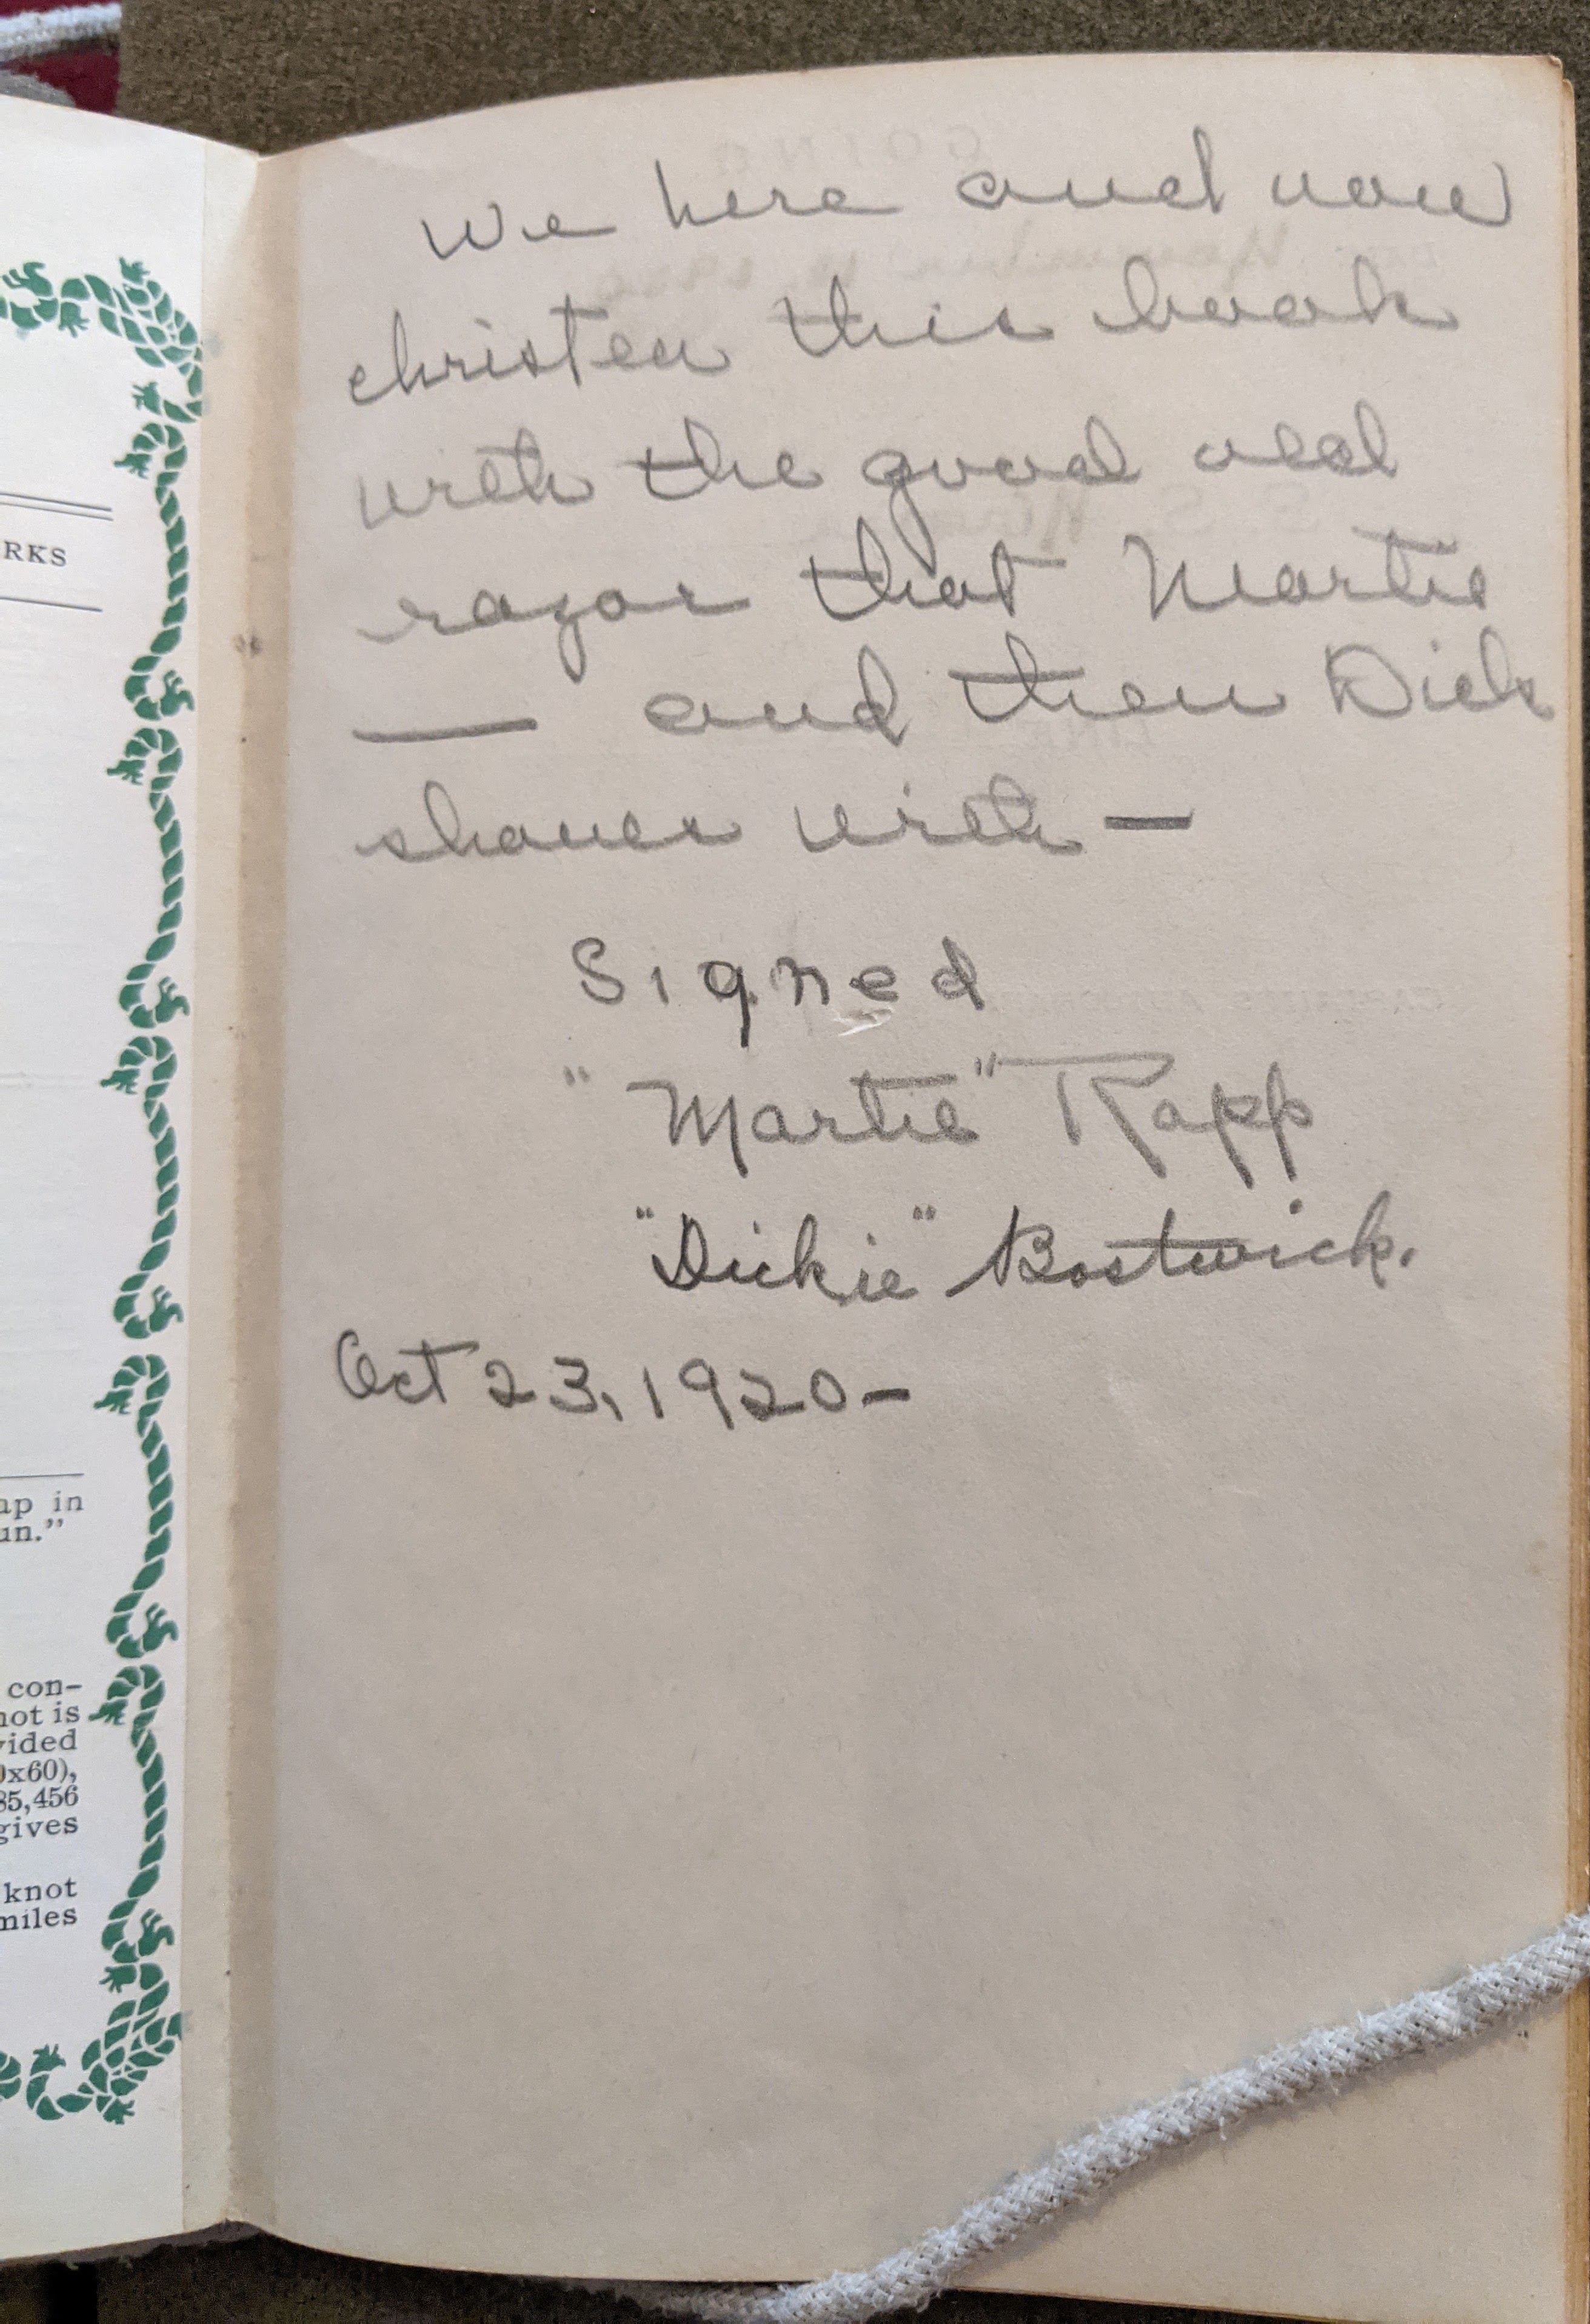 RKS
ap in
un.”
con-
not is
vided
0x60),
85,456
gives
knot
miles
We here and now
christen this book
with the good old
razor that Martie
— and then Dick
shaves with —
Signed
"Martie" Rapp
"Dickie" Bostwick.
Oct 23, 1920 -